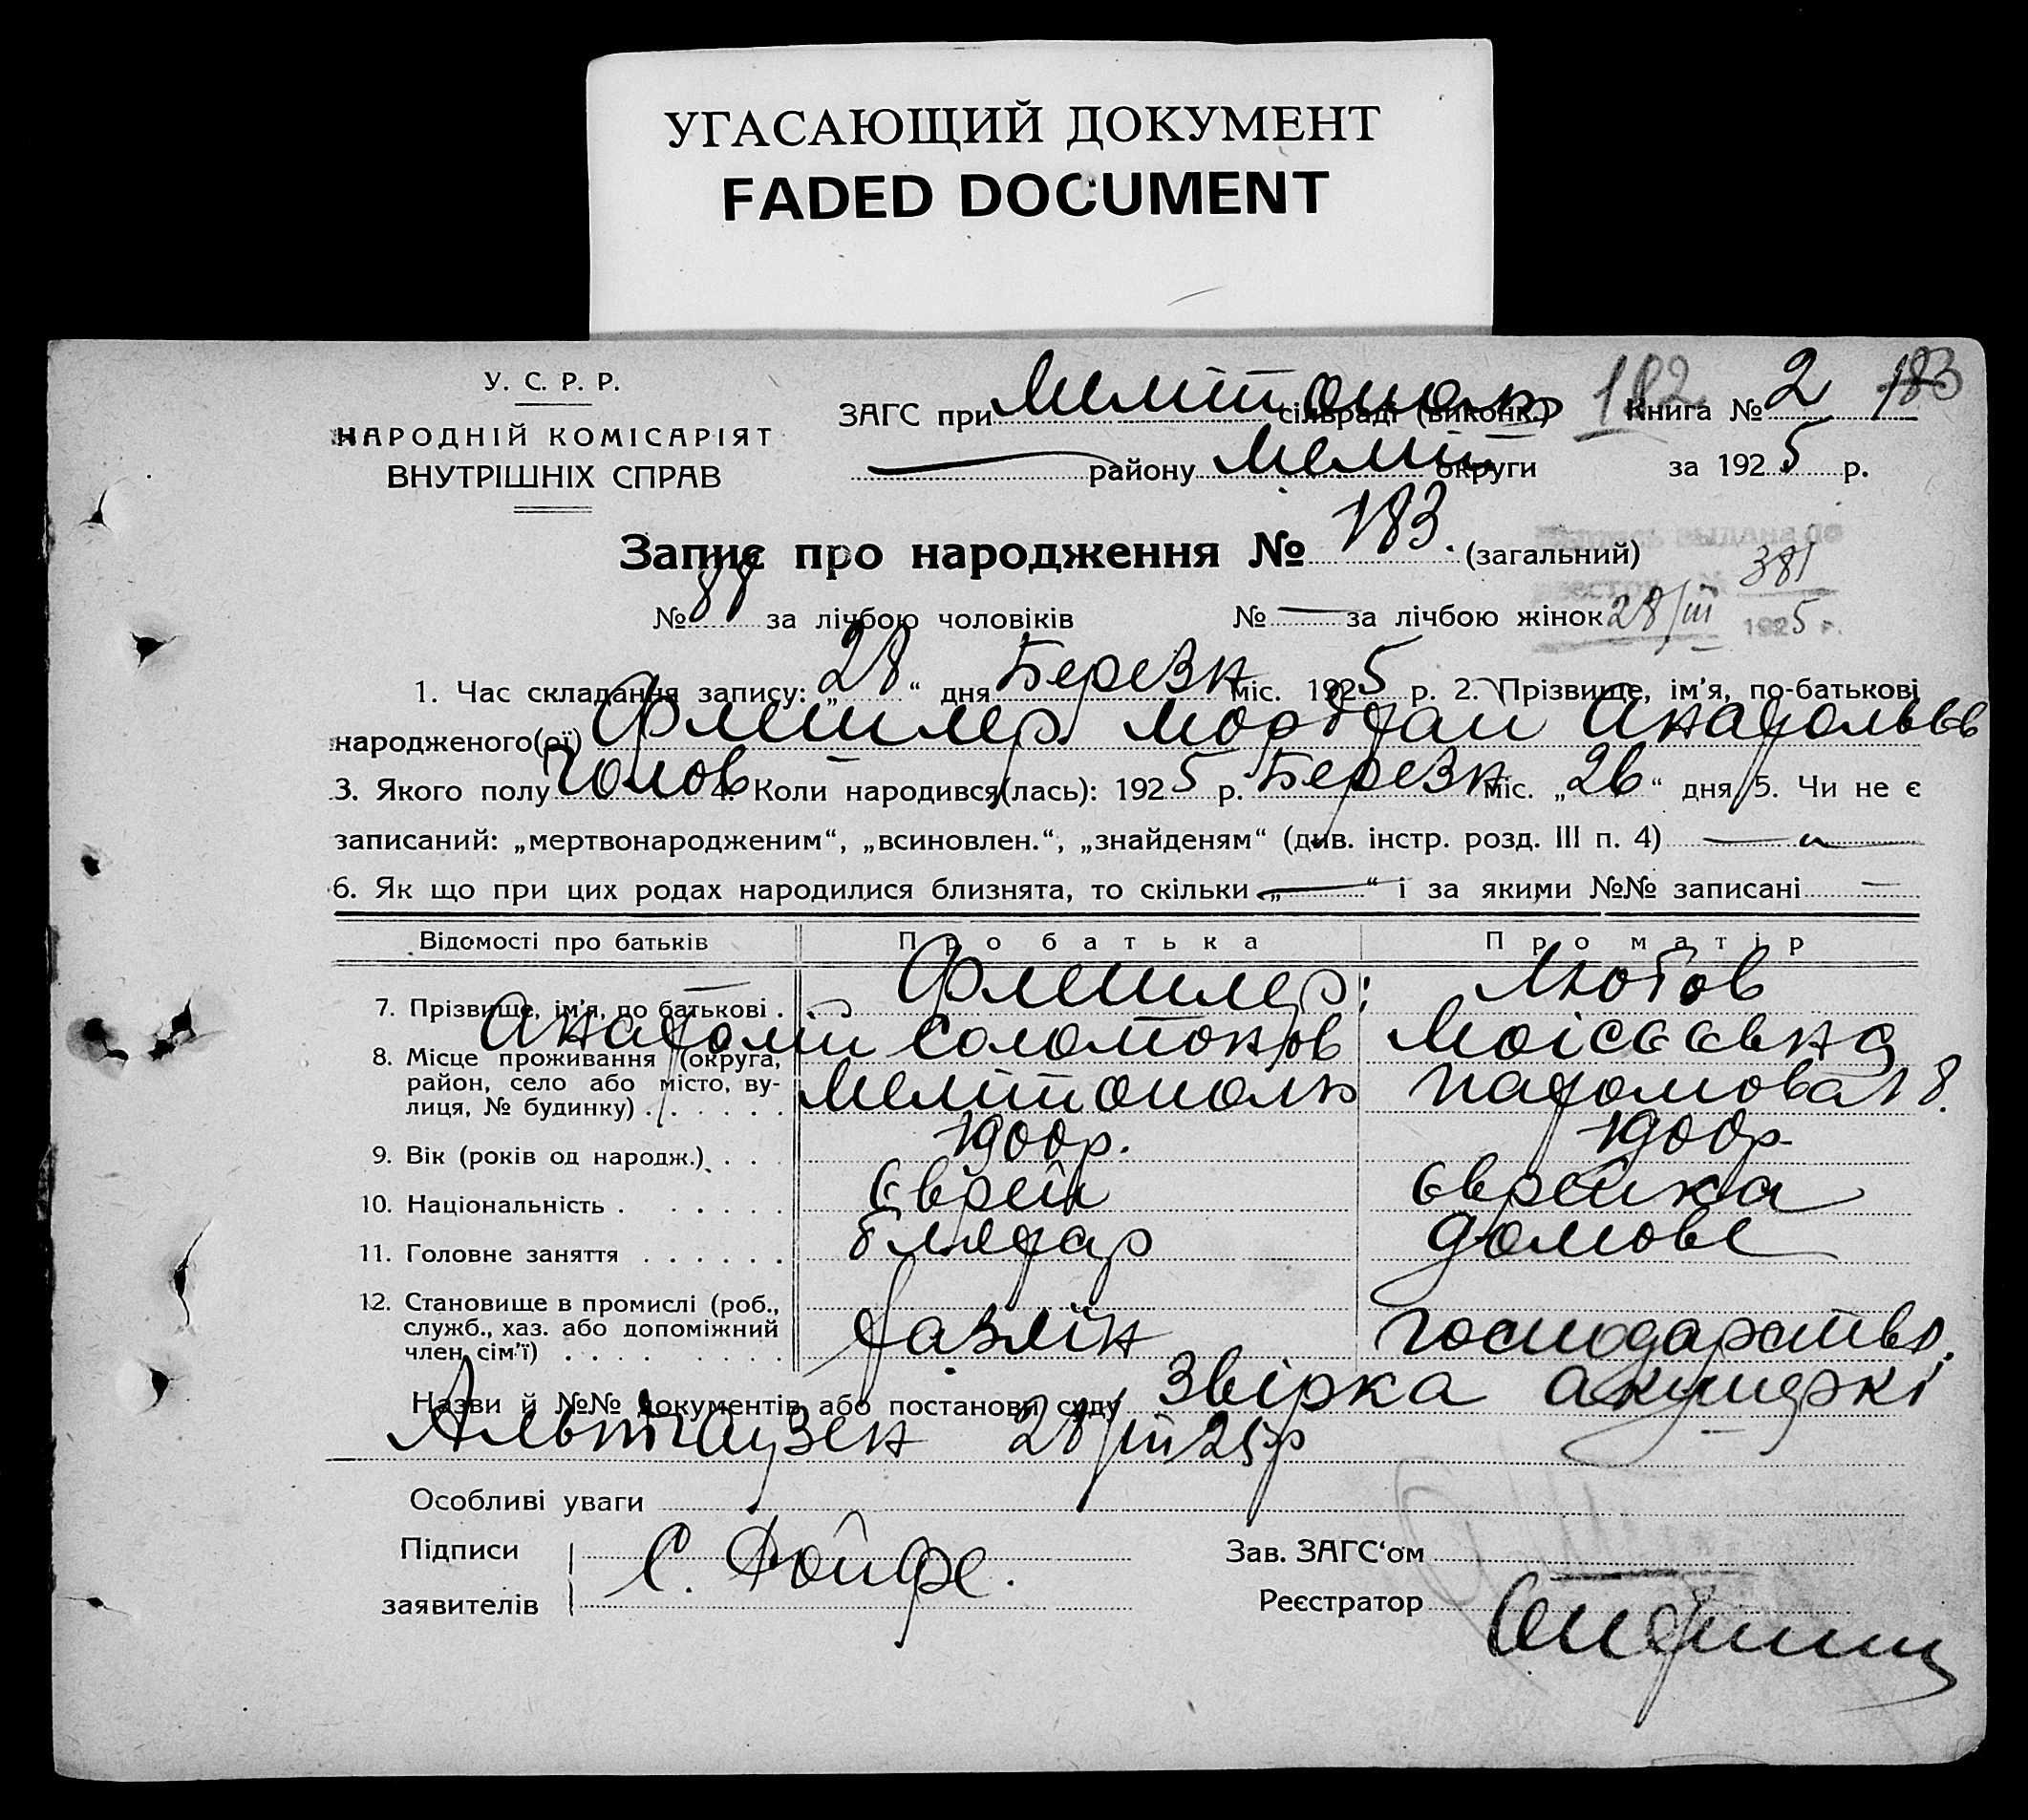 УГАСАЮЩИЙ ДОКУМЕНТ
FADED DOCUMENT
У. С. Р. Р.
НАРОДНІЙ КОМІСАРІЯТ
ВНУТРІШНІХ СПРАВ
ЗАГС при Мелітополь сільраді (виконк.) 182 Книга № 2 183
— району Меліт округи за 1925 р.
Запис про народження № 183. (загальний)
выдана
№ 88 за лічбою чоловіків № — за лічбою жінок
381
28/III 1925 г.
1. Час складання запису: „28“ дня Березн міс. 1925 р. 2. Прізвище, ім'я, по-батькові
народженого(ої) Флешлер Мордхай
3. Якого полу Чолов 4. Коли народився(лась): 1925 р. Березн міс. „26“ дня 5. Чи не є
записаний: „мертвонародженим“, „всиновлен.“, „знайденям“ (див. інстр. розд. III п. 4) —
6. Як що при цих родах народилися близнята, то скільки „—“ і за якими №№ записані —
Відомості про батьків Про батька Про матір
7. Прізвище, ім'я, по батькові . Флешлер Любов
Соломонов Моісеевна
8. Місце проживання (округа,
район, село або місто, ву-
лиця, № будинку) . . . . . . Мелітополь 18.
9. Вік (років од народж.) . . . 1900р. 1900р.
10. Національність . . . . . . Єврей Єврейка
11. Головне заняття . . . . . . домове
12. Становище в промислі (роб.,
служб., хаз. або допоміжний
член сім'ї) . . . . . . господарство.
Назви й №№ документів або постанови суду Звірка акушерки
Альтгаузен 28/III 25р
Особливі уваги
Підписи
заявителів С.
Зав. ЗАГС'ом
Реєстратор